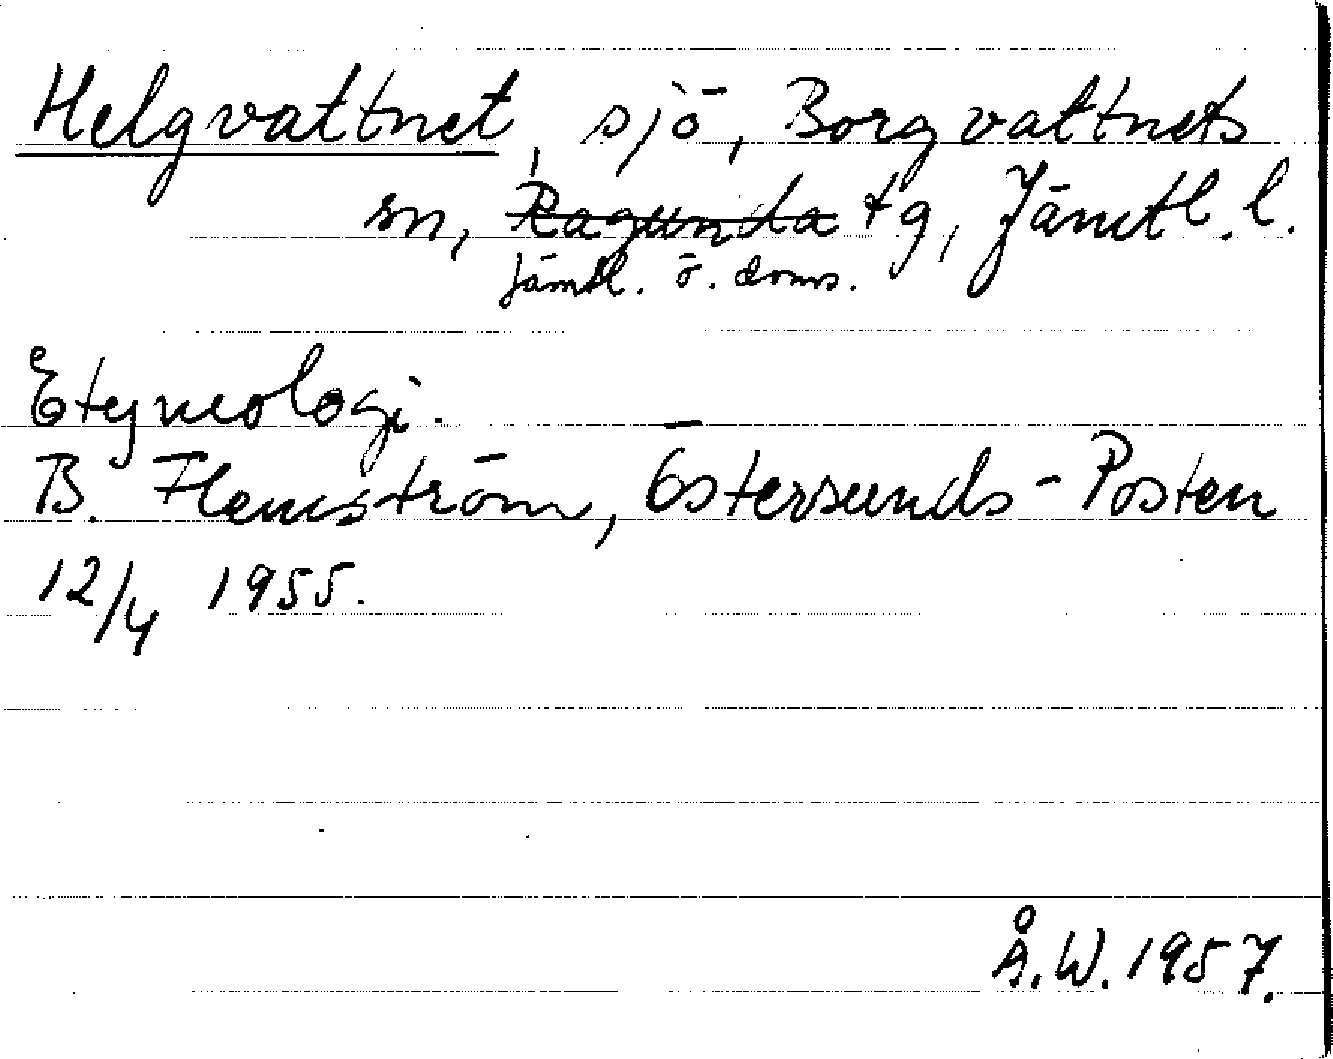 Helgvattnet, sjö, Borgvattnets
sn, Ragunda tg, Jämtl. l.
Jämtl. ö. doms.
Etymologi.
B. Flemström, Östersunds-Posten
12/4 1955.
Å.W. 1957.